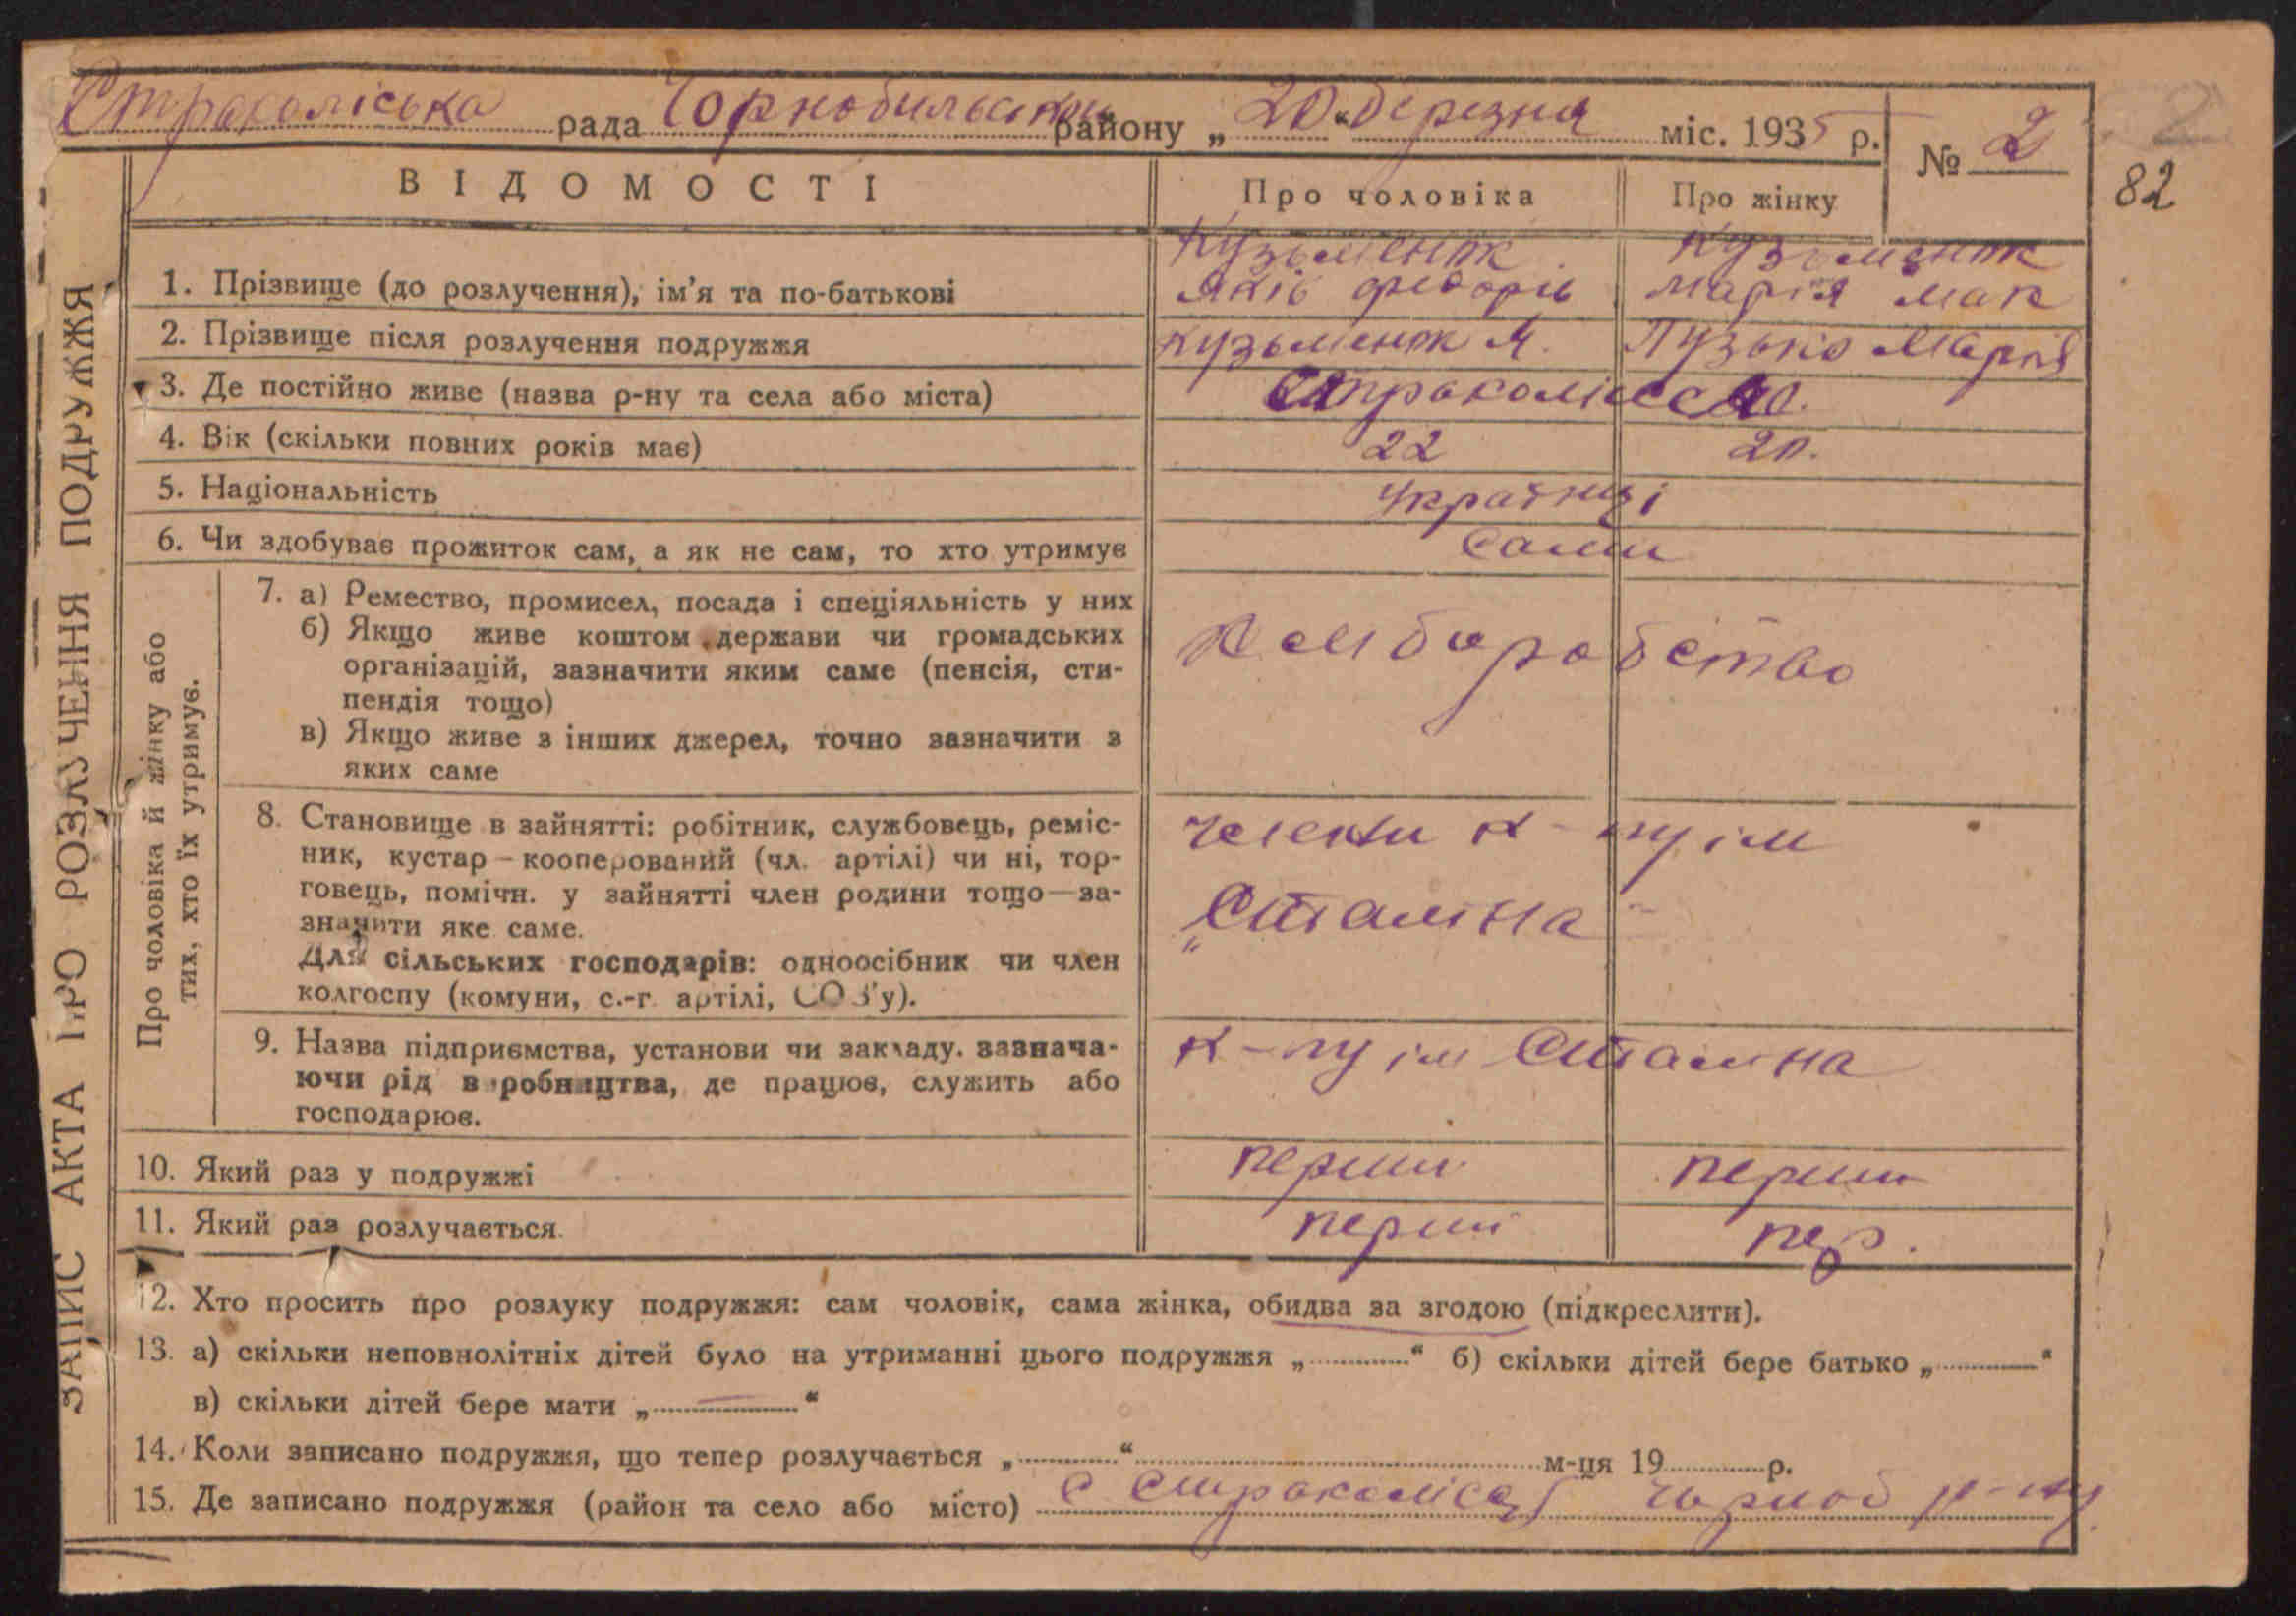 Страхоліська рада Чорнобильський району „20“ березня міс. 1935 р. № 2
82
ЗАПИС АКТА ПРО РОЗЛУЧЕННЯ ПОДРУЖЖЯ
ВІДОМОСТІ Про чоловіка Про жінку
1. Прізвище (до розлучення), ім’я та по-батькові Кузьменок Яків Федорів Кузьменок Марія Мак
2. Прізвище після розлучення подружжя Кузьменок Я. Пузько Марія
3. Де постійно живе (назва р-ну та села або міста) Страхолісся
4. Вік (скільки повних років має) 22 20.
5. Національність Українці
6. Чи здобуває прожиток сам, а як не сам, то хто утримує Сами
Про чоловіка й жінку або
тих, хто їх утримує.
7. а) Ремество, промисел, посада і спеціяльність у них
б) Якщо живе коштом держави чи громадських
організацій, зазначити яким саме (пенсія, сти-
пендія тощо)
в) Якщо живе з інших джерел, точно зазначити з
яких саме
8. Становище в зайнятті: робітник, службовець, реміс-
ник, кустар – кооперований (чл. артілі) чи ні, тор-
говець, помічн. у зайнятті член родини тощо—за-
значити яке саме.
Для сільських господарів: одноосібник чи член
колгоспу (комуни, с.-г. артілі, СОЗ’у).
члени к-пу ім
„Сталіна“
9. Назва підприємства, установи чи закладу, зазнача-
ючи рід виробництва, де працює, служить або
господарює.
к-пу ім Сталина
10. Який раз у подружжі перший перший
11. Який раз розлучається перший пер.
12. Хто просить про розлуку подружжя: сам чоловік, сама жінка, обидва за згодою (підкреслити).
13. а) скільки неповнолітніх дітей було на утриманні цього подружжя „ “ б) скільки дітей бере батько „ “
в) скільки дітей бере мати „ — “
14. Коли записано подружжя, що тепер розлучається „ “ м-ця 19 р.
15. Де записано подружжя (район та село або місто) с Страхоліссі Чорноб р-ну